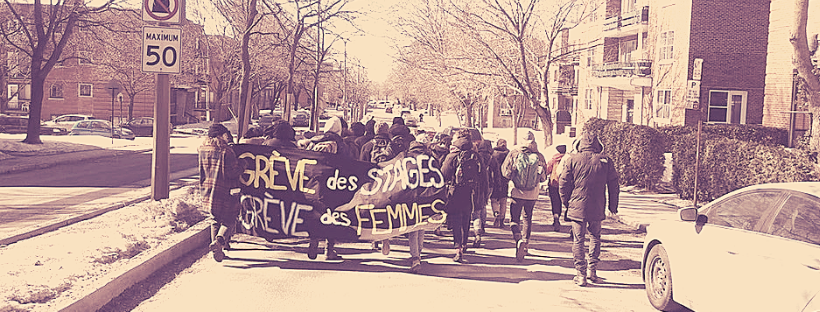 MAXIMUM
50
GRÈVE des STAGES
GRÈVE des FEMMES